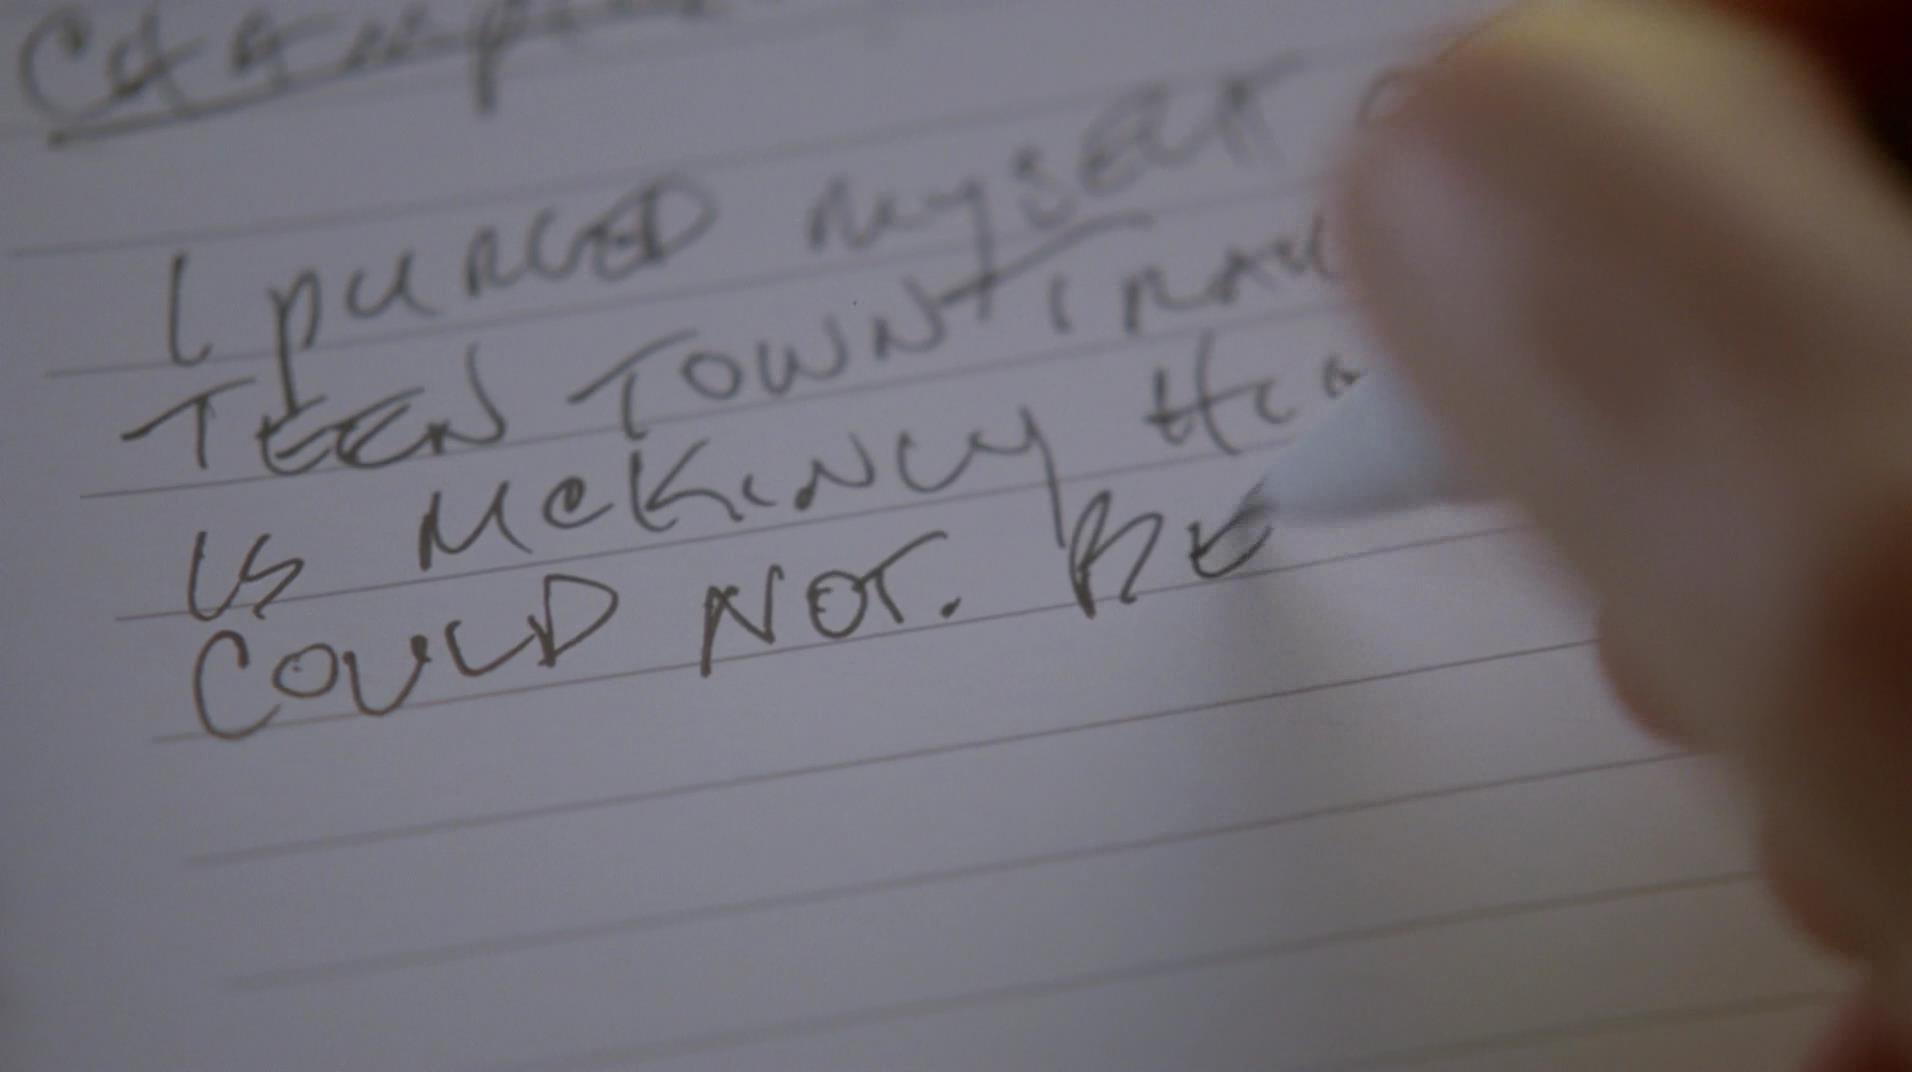 I PURGED MYSELF
TEEN TOWN I
IS MCKINLY
COULD NOT. BE